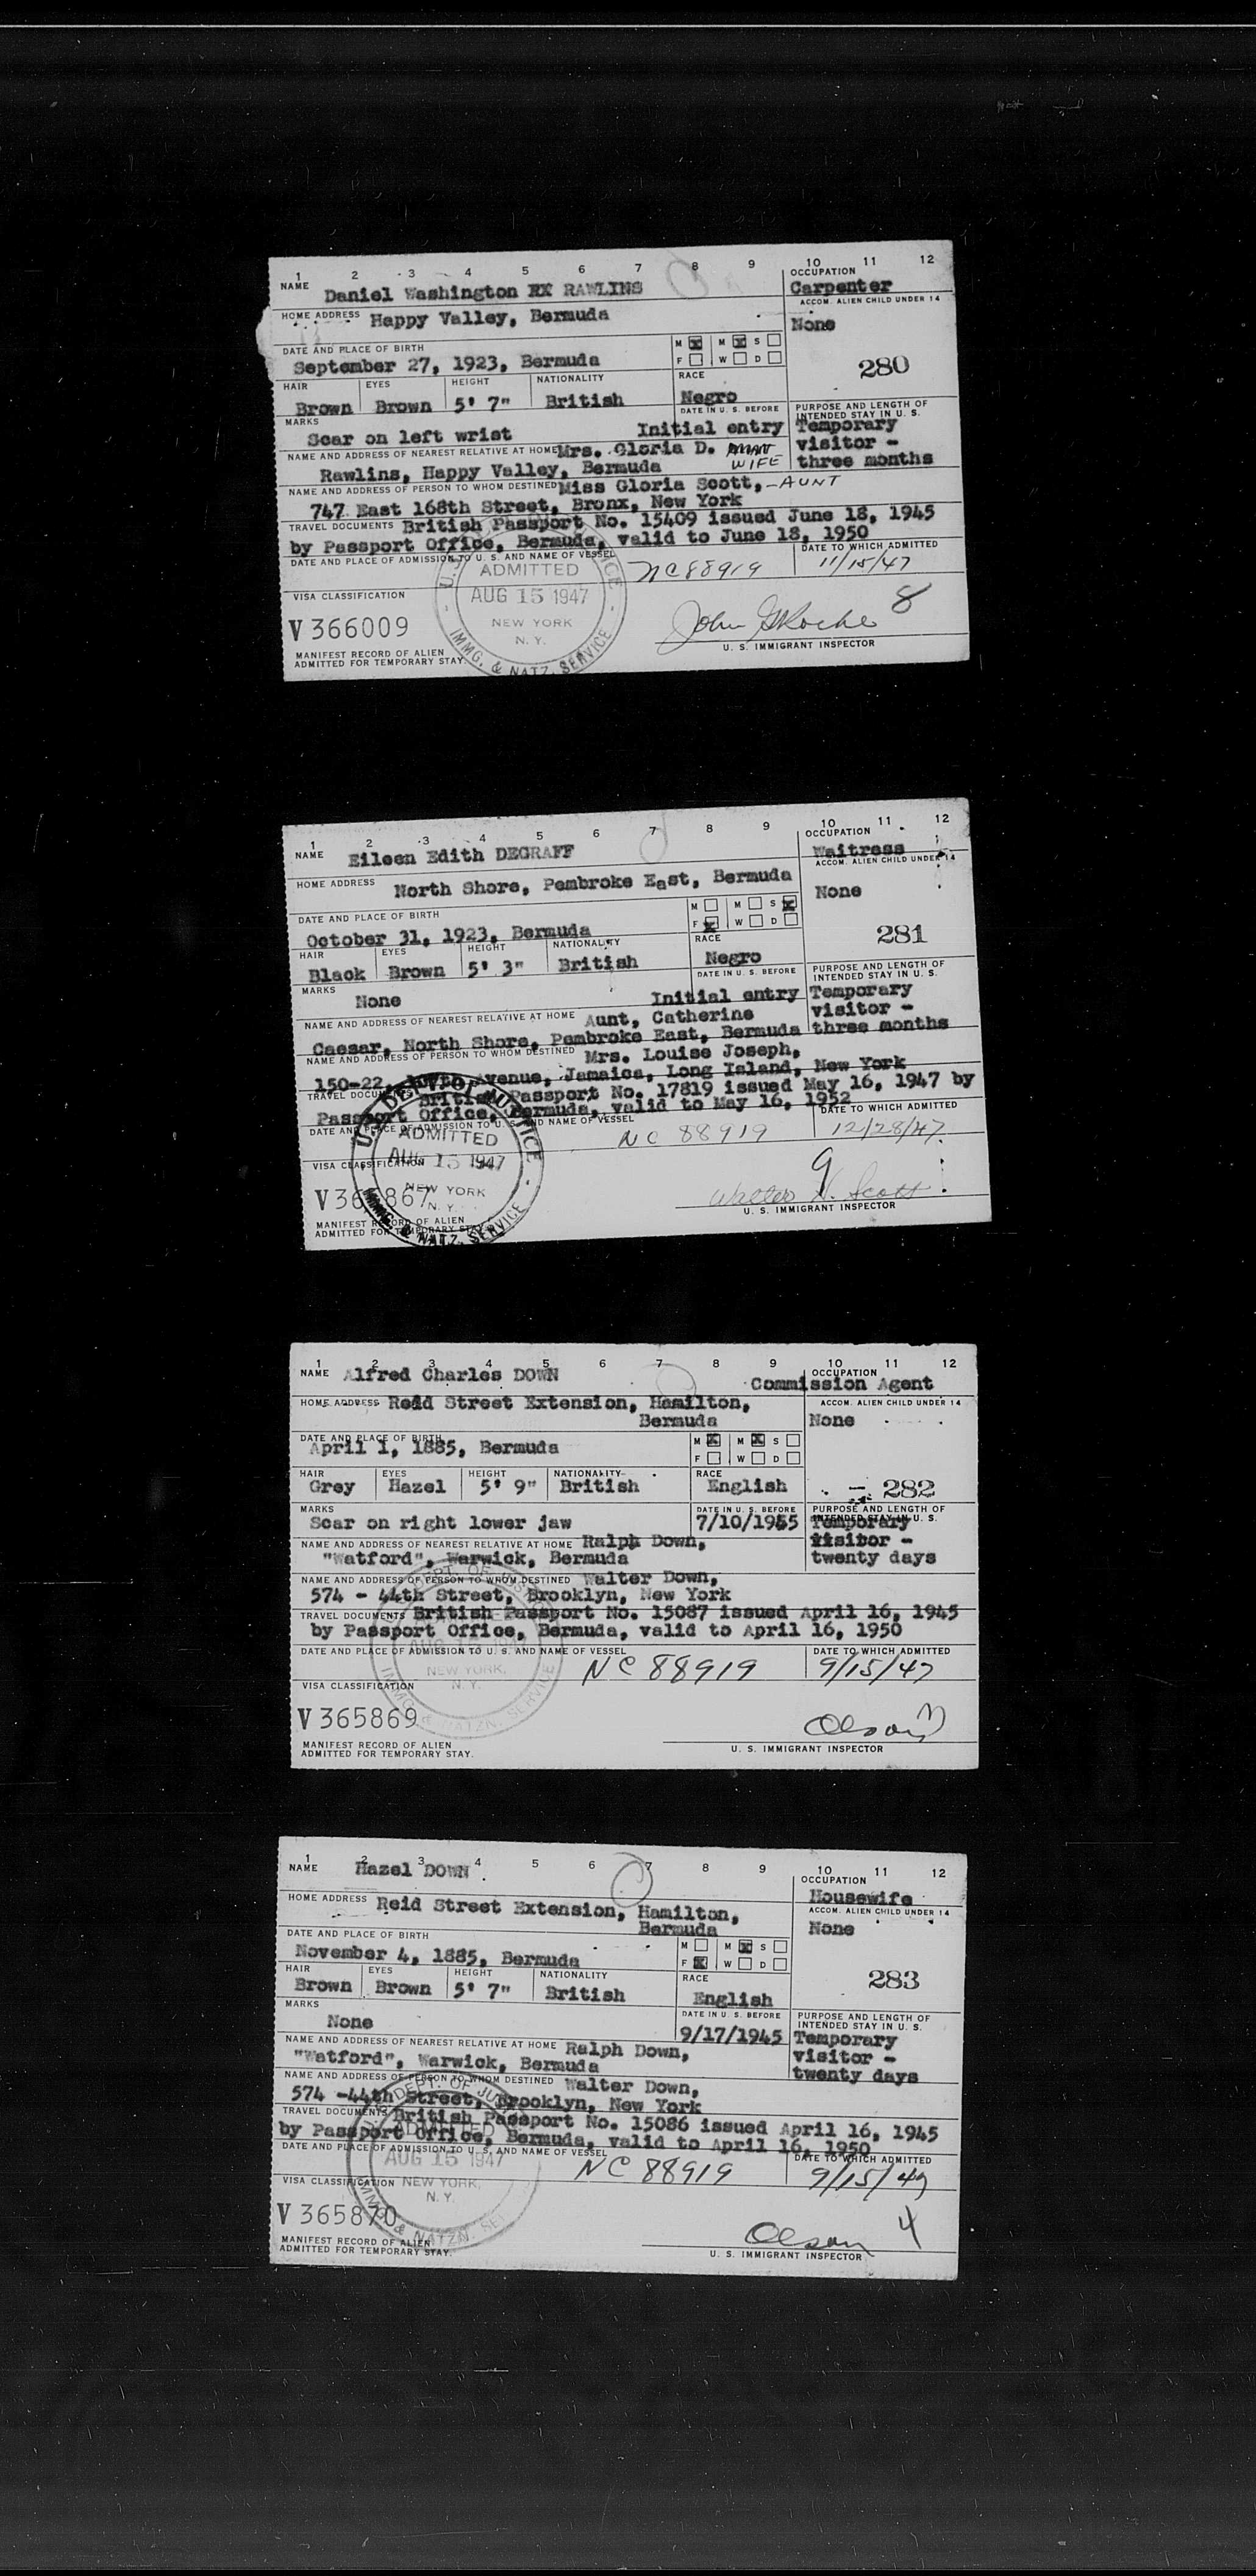 1 2 3 4 5 6 7 8 9 10 11 12
NAME Daniel Washington RX RAWLINS
OCCUPATION
Carpenter
HOME ADDRESS Happy Valley, Bermuda
ACCOM. ALIEN CHILD UNDER 14
None
DATE AND PLACE OF BIRTH
September 27, 1923, Bermuda
M X M X S
F W D
280
HAIR EYES HEIGHT NATIONALITY RACE
Brown Brown 5' 7" British Negro
MARKS
Scar on left wrist
DATE IN U. S. BEFORE
Initial entry
PURPOSE AND LENGTH OF
INTENDED STAY IN U. S.
Temporary
visitor -
three months
NAME AND ADDRESS OF NEAREST RELATIVE AT HOME Mrs. Gloria D.
Rawlins, Happy Valley, Bermuda WIFE
NAME AND ADDRESS OF PERSON TO WHOM DESTINED Miss Gloria Scott, - AUNT
747 East 168th Street, Bronx, New York
TRAVEL DOCUMENTS British Passport No. 15409 issued June 18, 1945
by Passport Office, Bermuda, valid to June 18, 1950
DATE AND PLACE OF ADMISSION TO U. S. AND NAME OF VESSEL
NC 88919
DATE TO WHICH ADMITTED
11/15/47
ADMITTED
AUG 15 1947
NEW YORK
N. Y.
IMMG. & NATZ. SERVICE
VISA CLASSIFICATION
V 366009
8
U. S. IMMIGRANT INSPECTOR
MANIFEST RECORD OF ALIEN
ADMITTED FOR TEMPORARY STAY.
1 2 3 4 5 6 7 8 9 10 11 12
NAME Eileen Edith DEGRAFF
OCCUPATION
Waitress
HOME ADDRESS North Shore, Pembroke East, Bermuda
ACCOM. ALIEN CHILD UNDER 14
None
DATE AND PLACE OF BIRTH
October 31, 1923, Bermuda
M M S X
F X W D
281
HAIR EYES HEIGHT NATIONALITY RACE
Black Brown 5' 3" British Negro
MARKS
None
DATE IN U. S. BEFORE
Initial entry
PURPOSE AND LENGTH OF
INTENDED STAY IN U. S.
Temporary
visitor -
three months
NAME AND ADDRESS OF NEAREST RELATIVE AT HOME Aunt, Catherine
Caesar, North Shore, Pembroke East, Bermuda
NAME AND ADDRESS OF PERSON TO WHOM DESTINED Mrs. Louise Joseph,
150-22, Avenue, Jamaica, Long Island, New York
TRAVEL DOCUMENTS British Passport No. 17819 issued May 16, 1947 by
Passport Office, Bermuda, valid to May 16, 1952
DATE AND PLACE OF ADMISSION TO U. S. AND NAME OF VESSEL
NC 88919
DATE TO WHICH ADMITTED
12/28/47
ADMITTED
AUG 15 1947
NEW YORK
N. Y.
IMMG. & NATZ. SERVICE
VISA CLASSIFICATION
9
Walter N. Scott
U. S. IMMIGRANT INSPECTOR
MANIFEST RECORD OF ALIEN
ADMITTED FOR TEMPORARY STAY.
1 2 3 4 5 6 7 8 9 10 11 12
NAME Alfred Charles DOWN
OCCUPATION
Commission Agent
HOME ADDRESS Reid Street Extension, Hamilton,
Bermuda
ACCOM. ALIEN CHILD UNDER 14
None
DATE AND PLACE OF BIRTH
April 1, 1885, Bermuda
M X M X S
F W D
282
HAIR EYES HEIGHT NATIONALITY RACE
Grey Hazel 5' 9" British English
MARKS
Scar on right lower jaw
DATE IN U. S. BEFORE
7/10/1945
PURPOSE AND LENGTH OF
INTENDED STAY IN U. S.
Temporary
visitor -
twenty days
NAME AND ADDRESS OF NEAREST RELATIVE AT HOME Ralph Down,
"Watford", Warwick, Bermuda
NAME AND ADDRESS OF PERSON TO WHOM DESTINED Walter Down,
574 - 44th Street, Brooklyn, New York
TRAVEL DOCUMENTS British Passport No. 15087 issued April 16, 1945
by Passport Office, Bermuda, valid to April 16, 1950
DATE AND PLACE OF ADMISSION TO U. S. AND NAME OF VESSEL
NC 88919
DATE TO WHICH ADMITTED
9/15/47
NEW YORK,
N. Y.
VISA CLASSIFICATION
V 365869
Olson
U. S. IMMIGRANT INSPECTOR
MANIFEST RECORD OF ALIEN
ADMITTED FOR TEMPORARY STAY.
1 2 3 4 5 6 7 8 9 10 11 12
NAME Hazel DOWN
OCCUPATION
Housewife
HOME ADDRESS Reid Street Extension, Hamilton,
Bermuda
ACCOM. ALIEN CHILD UNDER 14
None
DATE AND PLACE OF BIRTH
November 4, 1885, Bermuda
M M X S
F X W D
283
HAIR EYES HEIGHT NATIONALITY RACE
Brown Brown 5' 7" British English
MARKS
None
DATE IN U. S. BEFORE
9/17/1945
PURPOSE AND LENGTH OF
INTENDED STAY IN U. S.
Temporary
visitor -
twenty days
NAME AND ADDRESS OF NEAREST RELATIVE AT HOME Ralph Down,
"Watford", Warwick, Bermuda
NAME AND ADDRESS OF PERSON TO WHOM DESTINED Walter Down,
574 -44th Street, Brooklyn, New York
TRAVEL DOCUMENTS British Passport No. 15086 issued April 16, 1945
by Passport Office, Bermuda, valid to April 16, 1950
DATE AND PLACE OF ADMISSION TO U. S. AND NAME OF VESSEL
NC 88919
DATE TO WHICH ADMITTED
9/15/47
ADMITTED
AUG 15 1947
NEW YORK,
N. Y.
VISA CLASSIFICATION
V 365870
Olson 4
U. S. IMMIGRANT INSPECTOR
MANIFEST RECORD OF ALIEN
ADMITTED FOR TEMPORARY STAY.